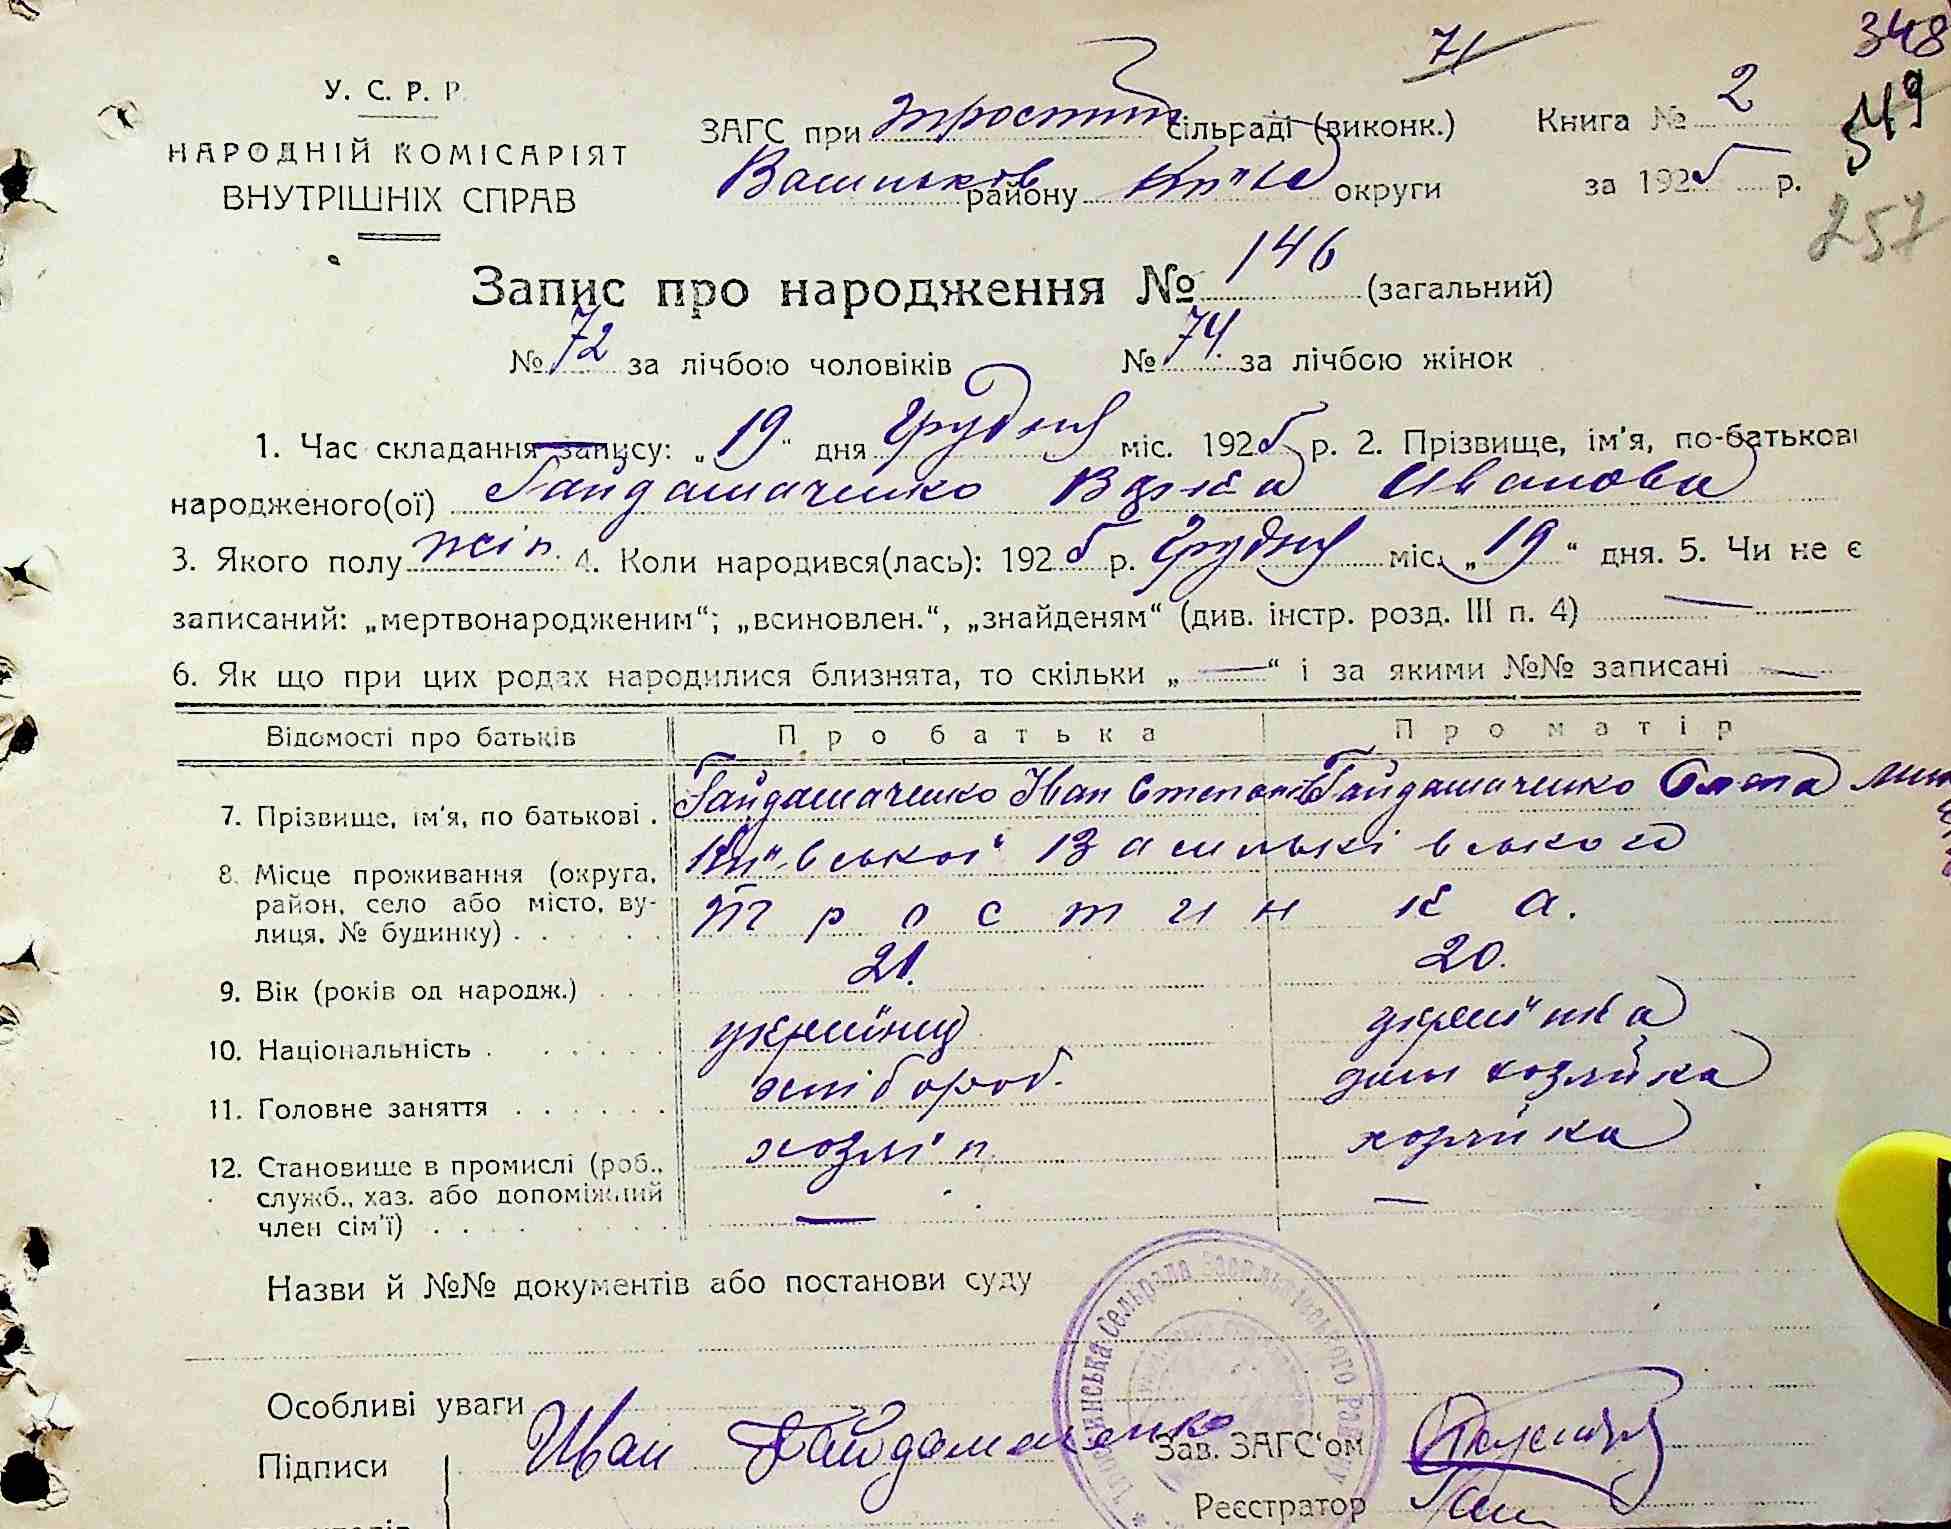 71
348
549
257
У. С. Р. Р.
НАРОДНІЙ КОМІСАРІЯТ
ВНУТРІШНІХ СПРАВ
ЗАГС при Тростин сільраді (виконк.)
Васильков району Київ округи
Книга № 2
за 1925 р.
Запис про народження № 146 (загальний)
№ 72 за лічбою чоловіків № 74 за лічбою жінок
1. Час складання запису: „19“ дня Грудня міс. 1925 р. 2. Прізвище, ім'я, по-батькові
народженого(ої) Гайдамаченко Іванова
3. Якого полу жін. 4. Коли народився(лась): 1925 р. Грудня міс. „19“ дня. 5. Чи не є
записаний: „мертвонародженим“; „всиновлен.“, „знайденям“ (див. інстр. розд. III п. 4) —
6. Як що при цих родах народилися близнята, то скільки „—“ і за якими №№ записані —
Відомості про батьків Про батька Про матір
7. Прізвище, ім'я, по батькові . Гайдамаченко Іван Степанов Гайдамаченко
8. Місце проживання (округа, Київської Васильківського
район, село або місто, ву- Тростинка.
лиця, № будинку) . . . . . .
9. Вік (років од народж.) . . . 21. 20.
10. Національність . . . . . . українец украінка
11. Головне заняття . . . . . . хлібороб. дом хозяйка
12. Становище в промислі (роб., хозяін хозяйка
служб., хаз. або допоміжний — —
член сім'ї) . . . . . . . .
Назви й №№ документів або постанови суду
Особливі уваги
Підписи Иван Гайдамаченко Зав. ЗАГС'ом
Реєстратор